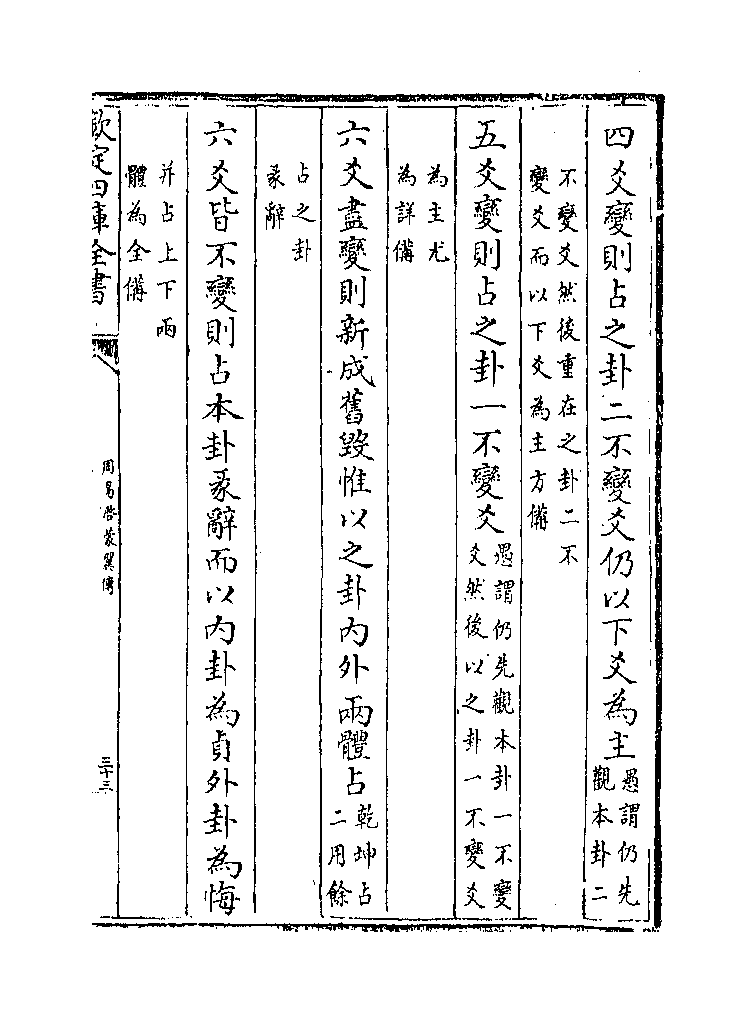 四爻變則占之卦二不變爻仍以下爻為主愚謂仍先觀本卦二
不變爻然後重在之卦二不變爻而以下爻為主方備
五爻變則占之卦一不變爻愚謂仍先觀本卦一不變爻然後以之卦一不變爻
為主尤為詳備
六爻盡變則新成舊毀惟以之卦内外兩體占乾坤占二用餘
占之卦彖辭
六爻皆不變則占本卦彖辭而以内卦為貞外卦為悔
并占上下兩體為全備
欽定四庫全書
周易啓蒙翼傳
三十三